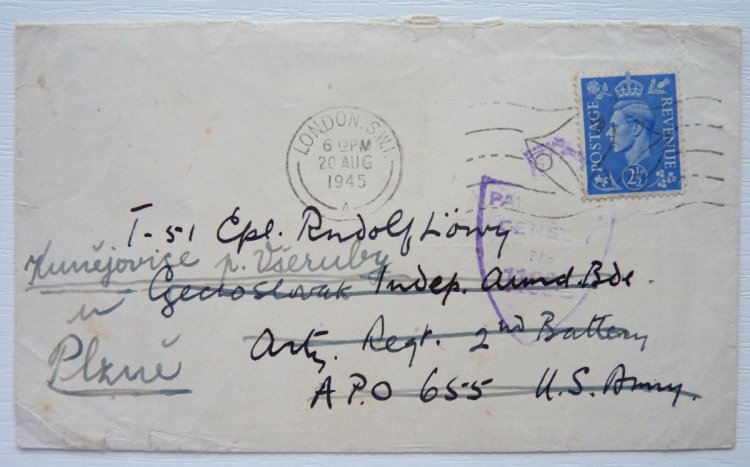 LONDON. S.W.1.
6 PM
20 AUG
1945
A
POSTAGE REVENUE
2½D
PA
CENSO
T-51 Cpl. Rudolf Löwy
Kunějovice p. Všeruby
Czechoslovak Indep. Armd. Bde.
u
Arty. Regt. 2nd Battery
Plzně
A.P.O 655 U.S. Army.